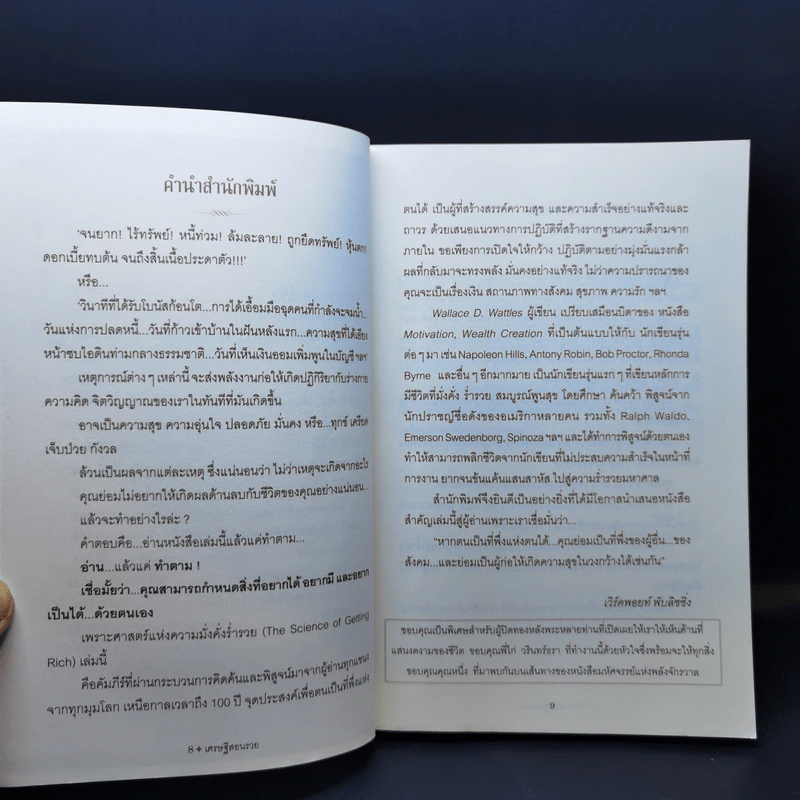 คำนำสำนักพิมพ์
'จนยาก! ไร้ทรัพย์! หนี้ท่วม! ล้มละลาย! ถูกยึดทรัพย์! หุ้นตก!
ดอกเบี้ยทบต้น จนถึงสิ้นเนื้อประดาตัว!!!'
หรือ...
'วินาทีที่ได้รับโบนัสก้อนโต...การได้เอื้อมมือฉุดคนที่กำลังจะจมน้ำ...
วันแห่งการปลดหนี้...วันที่ก้าวเข้าบ้านในฝันหลังแรก...ความสุขที่ได้เอียง
หน้าซบไอดินท่ามกลางธรรมชาติ...วันที่เห็นเงินออมเพิ่มพูนในบัญชี ฯลฯ'
เหตุการณ์ต่าง ๆ เหล่านี้ จะส่งพลังงานก่อให้เกิดปฏิกิริยากับร่างกาย
ความคิด จิตวิญญาณของเราในทันทีที่มันเกิดขึ้น
อาจเป็นความสุข ความอุ่นใจ ปลอดภัย มั่นคง หรือ...ทุกข์ เครียด
เจ็บป่วย กังวล
ล้วนเป็นผลจากแต่ละเหตุ ซึ่งแน่นอนว่า ไม่ว่าเหตุจะเกิดจากอะไร
คุณย่อมไม่อยากให้เกิดผลด้านลบกับชีวิตของคุณอย่างแน่นอน...
แล้วจะทำอย่างไรล่ะ ?
คำตอบคือ...อ่านหนังสือเล่มนี้แล้วแค่ทำตาม...
อ่าน...แล้วแค่ ทำตาม !
เชื่อมั้ยว่า...คุณสามารถกำหนดสิ่งที่อยากได้ อยากมี และอยาก
เป็นได้...ด้วยตนเอง
เพราะศาสตร์แห่งความมั่งคั่งร่ำรวย (The Science of Getting
Rich) เล่มนี้
คือคัมภีร์ที่ผ่านกระบวนการคิดค้นและพิสูจน์มาจากผู้อ่านทุกแขนง
จากทุกมุมโลก เหนือกาลเวลาถึง 100 ปี จุดประสงค์เพื่อตนเป็นที่พึ่งแห่ง
8 ✦ เศรษฐีสอนรวย
ตนได้ เป็นผู้ที่สร้างสรรค์ความสุข และความสำเร็จอย่างแท้จริงและ
ถาวร ด้วยเสนอแนวทางการปฏิบัติที่สร้างรากฐานความดีงามจาก
ภายใน ขอเพียงการเปิดใจให้กว้าง ปฏิบัติตามอย่างมุ่งมั่นแรงกล้า
ผลที่กลับมาจะทรงพลัง มั่นคงอย่างแท้จริง ไม่ว่าความปรารถนาของ
คุณจะเป็นเรื่องเงิน สถานภาพทางสังคม สุขภาพ ความรัก ฯลฯ
Wallace D. Wattles ผู้เขียน เปรียบเสมือนบิดาของ หนังสือ
Motivation, Wealth Creation ที่เป็นต้นแบบให้กับ นักเขียนรุ่น
ต่อ ๆ มา เช่น Napoleon Hills, Antony Robin, Bob Proctor, Rhonda
Byrne และอื่น ๆ อีกมากมาย เป็นนักเขียนรุ่นแรก ๆ ที่เขียนหลักการ
มีชีวิตที่มั่งคั่ง ร่ำรวย สมบูรณ์พูนสุข โดยศึกษา ค้นคว้า พิสูจน์จาก
นักปราชญ์ชื่อดังของอเมริกาหลายคน รวมทั้ง Ralph Waldo,
Emerson Swedenborg, Spinoza ฯลฯ และได้ทำการพิสูจน์ด้วยตนเอง
ทำให้สามารถพลิกชีวิตจากนักเขียนที่ไม่ประสบความสำเร็จในหน้าที่
การงาน ยากจนข้นแค้นแสนสาหัส ไปสู่ความร่ำรวยมหาศาล
สำนักพิมพ์จึงยินดีเป็นอย่างยิ่งที่ได้มีโอกาสนำเสนอหนังสือ
สำคัญเล่มนี้สู่ผู้อ่านเพราะเราเชื่อมั่นว่า...
"หากตนเป็นที่พึ่งแห่งตนได้...คุณย่อมเป็นที่พึ่งของผู้อื่น...ของ
สังคม...และย่อมเป็นผู้ก่อให้เกิดความสุขในวงกว้างได้เช่นกัน"
เวิร์คพอยท์ พับลิชชิ่ง
ขอบคุณเป็นพิเศษสำหรับผู้ปิดทองหลังพระหลายท่านที่เปิดเผยให้เราให้เห็นด้านที่
แสนงดงามของชีวิต ขอบคุณพี่ไก่ วรินทร์ธรา ที่ทำงานนี้ด้วยหัวใจซึ่งพร้อมจะให้ทุกสิ่ง
ขอบคุณคุณหนึ่ง ที่มาพบกันบนเส้นทางของหนังสือมหัศจรรย์แห่งพลังจักรวาล
9